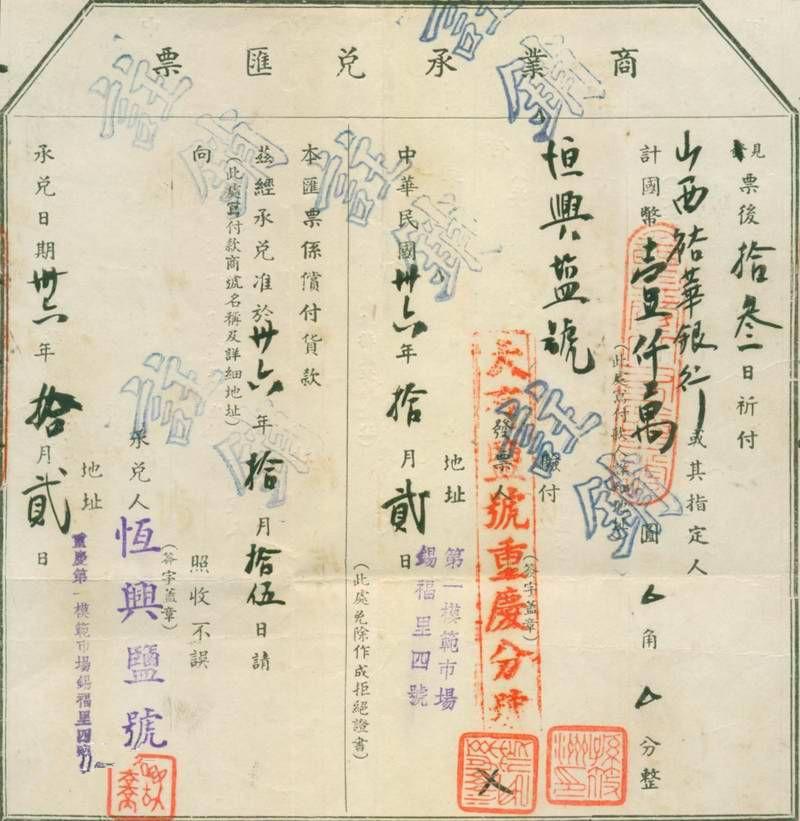 商業承兌匯票
見票後拾叁日祈付
山西裕華銀行或其指定人
計國幣壹仟萬圓△角△分整
恒興盐號
(此處寫付款人
照付
發票人
(簽字蓋章)
號重慶分號
地址
第一模範市場
錫福里四號
中華民國卅六年拾月貳日
(此處免除作成拒絕證書)
本匯票係償付貨款
茲經承兌准於卅六年拾月拾伍日請
(此處寫付款商號名稱及詳細地址)
向
照收不誤
承兌人
(簽字蓋章)
恆興鹽號
地址
重慶第一模範市場錫福里四號
承兌日期卅六年拾月貳日
註銷
註銷
註銷
註銷
註銷